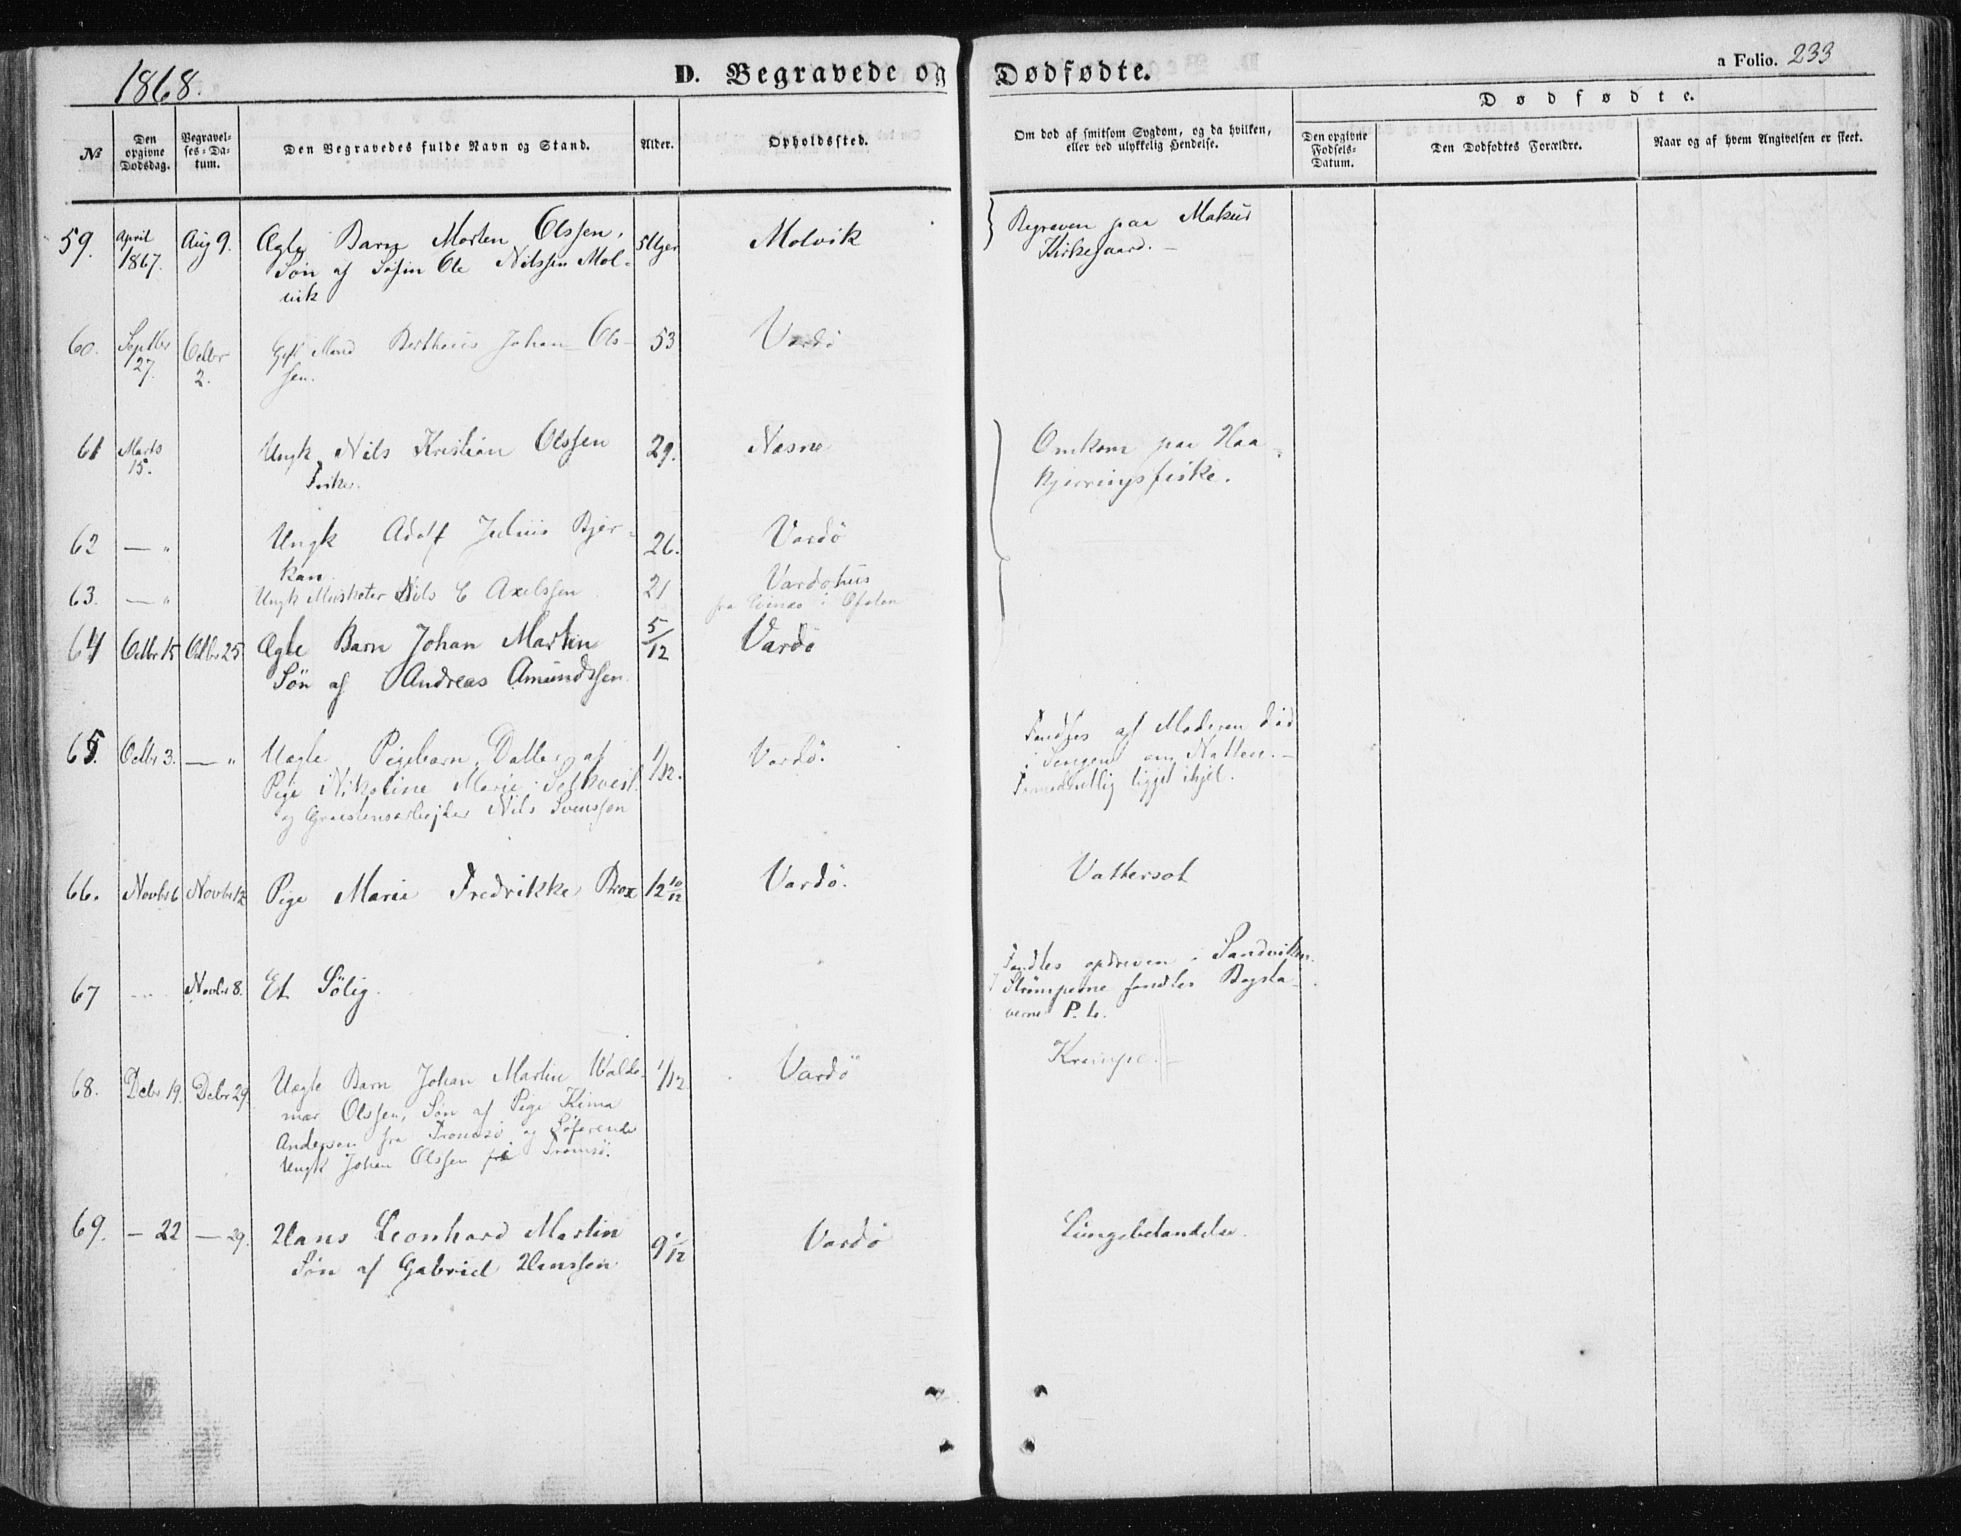 1868.
D. Begravede og Dødfødte.
a Folio. 233
Dødfødte.
№
Den opgivne Dødsdag.
Begravelses-Datum.
Den Begravedes fulde Navn og Stand.
Alder.
Opholdssted.
Om død af smitsom Sygdom, og da hvilken, eller ved ulykkelig Hendelse.
Den opgivne Fødsels-Datum.
Den Dødfødtes Forældre.
Naar og af hvem Angivelsen er skeet.
59. April Aug 9. Ægte Barn Morten Olssen, 5 Uger Molvik Begraven paa Makur
1867. Søn af Søfin Ole Nilssen Mol- Kirkegaard.
vik
60. Septbr Octbr Gift Mand Bertheus Johan Ols- 53 Vardø
27. 2. sen.
61 Marts Ungk Nils Kristian Olssen 29. Næsne Omkom paa Haa-
15. Fisker. kjerringsfiske.
62 — " Ungk Adolf Julius Bjer- 26. Vardø
kan
63. — " Ungk Musketer Nils E Axelssen 21 Vardøhus
fra i Ofoten
64 Octbr 15 Octbr 25 Ægte Barn Johan Martin 5/12 Vardø
Søn af Andreas Amundssen.
65. Octbr 3. — " Uægte Pigebarn, Datter af 1/12. Vardø. Fandtes af Moderen død
Pige Nikoline Marie i Sengen om Natten. —
og Nils Svenssen Formodentlig ligget ihjel.
66. Novbr 6 Novbr 12 Pige Marie Fredrikke Brox 12 10/12 Vardø. Vattersot
67 Novbr 8. Et Sølig. Fandtes opdreven i Sandviken.
Strømperne fandtes Bogsta-
verne P. L.
68. Decbr 19. Decbr 29. Uægte Barn Johan Martin Walde- 1/12 Vardø Krampe. —
mar Olssen, Søn af Pige Kima
Andersen fra Tromsø og Søfarende
Ungk Johan Olssen fra Tromsø.
69. — 22 — 29. Hans Leonhard Martin 9 1/12 Vardø Lungebetendelse.
Søn af Gabriel Hanssen